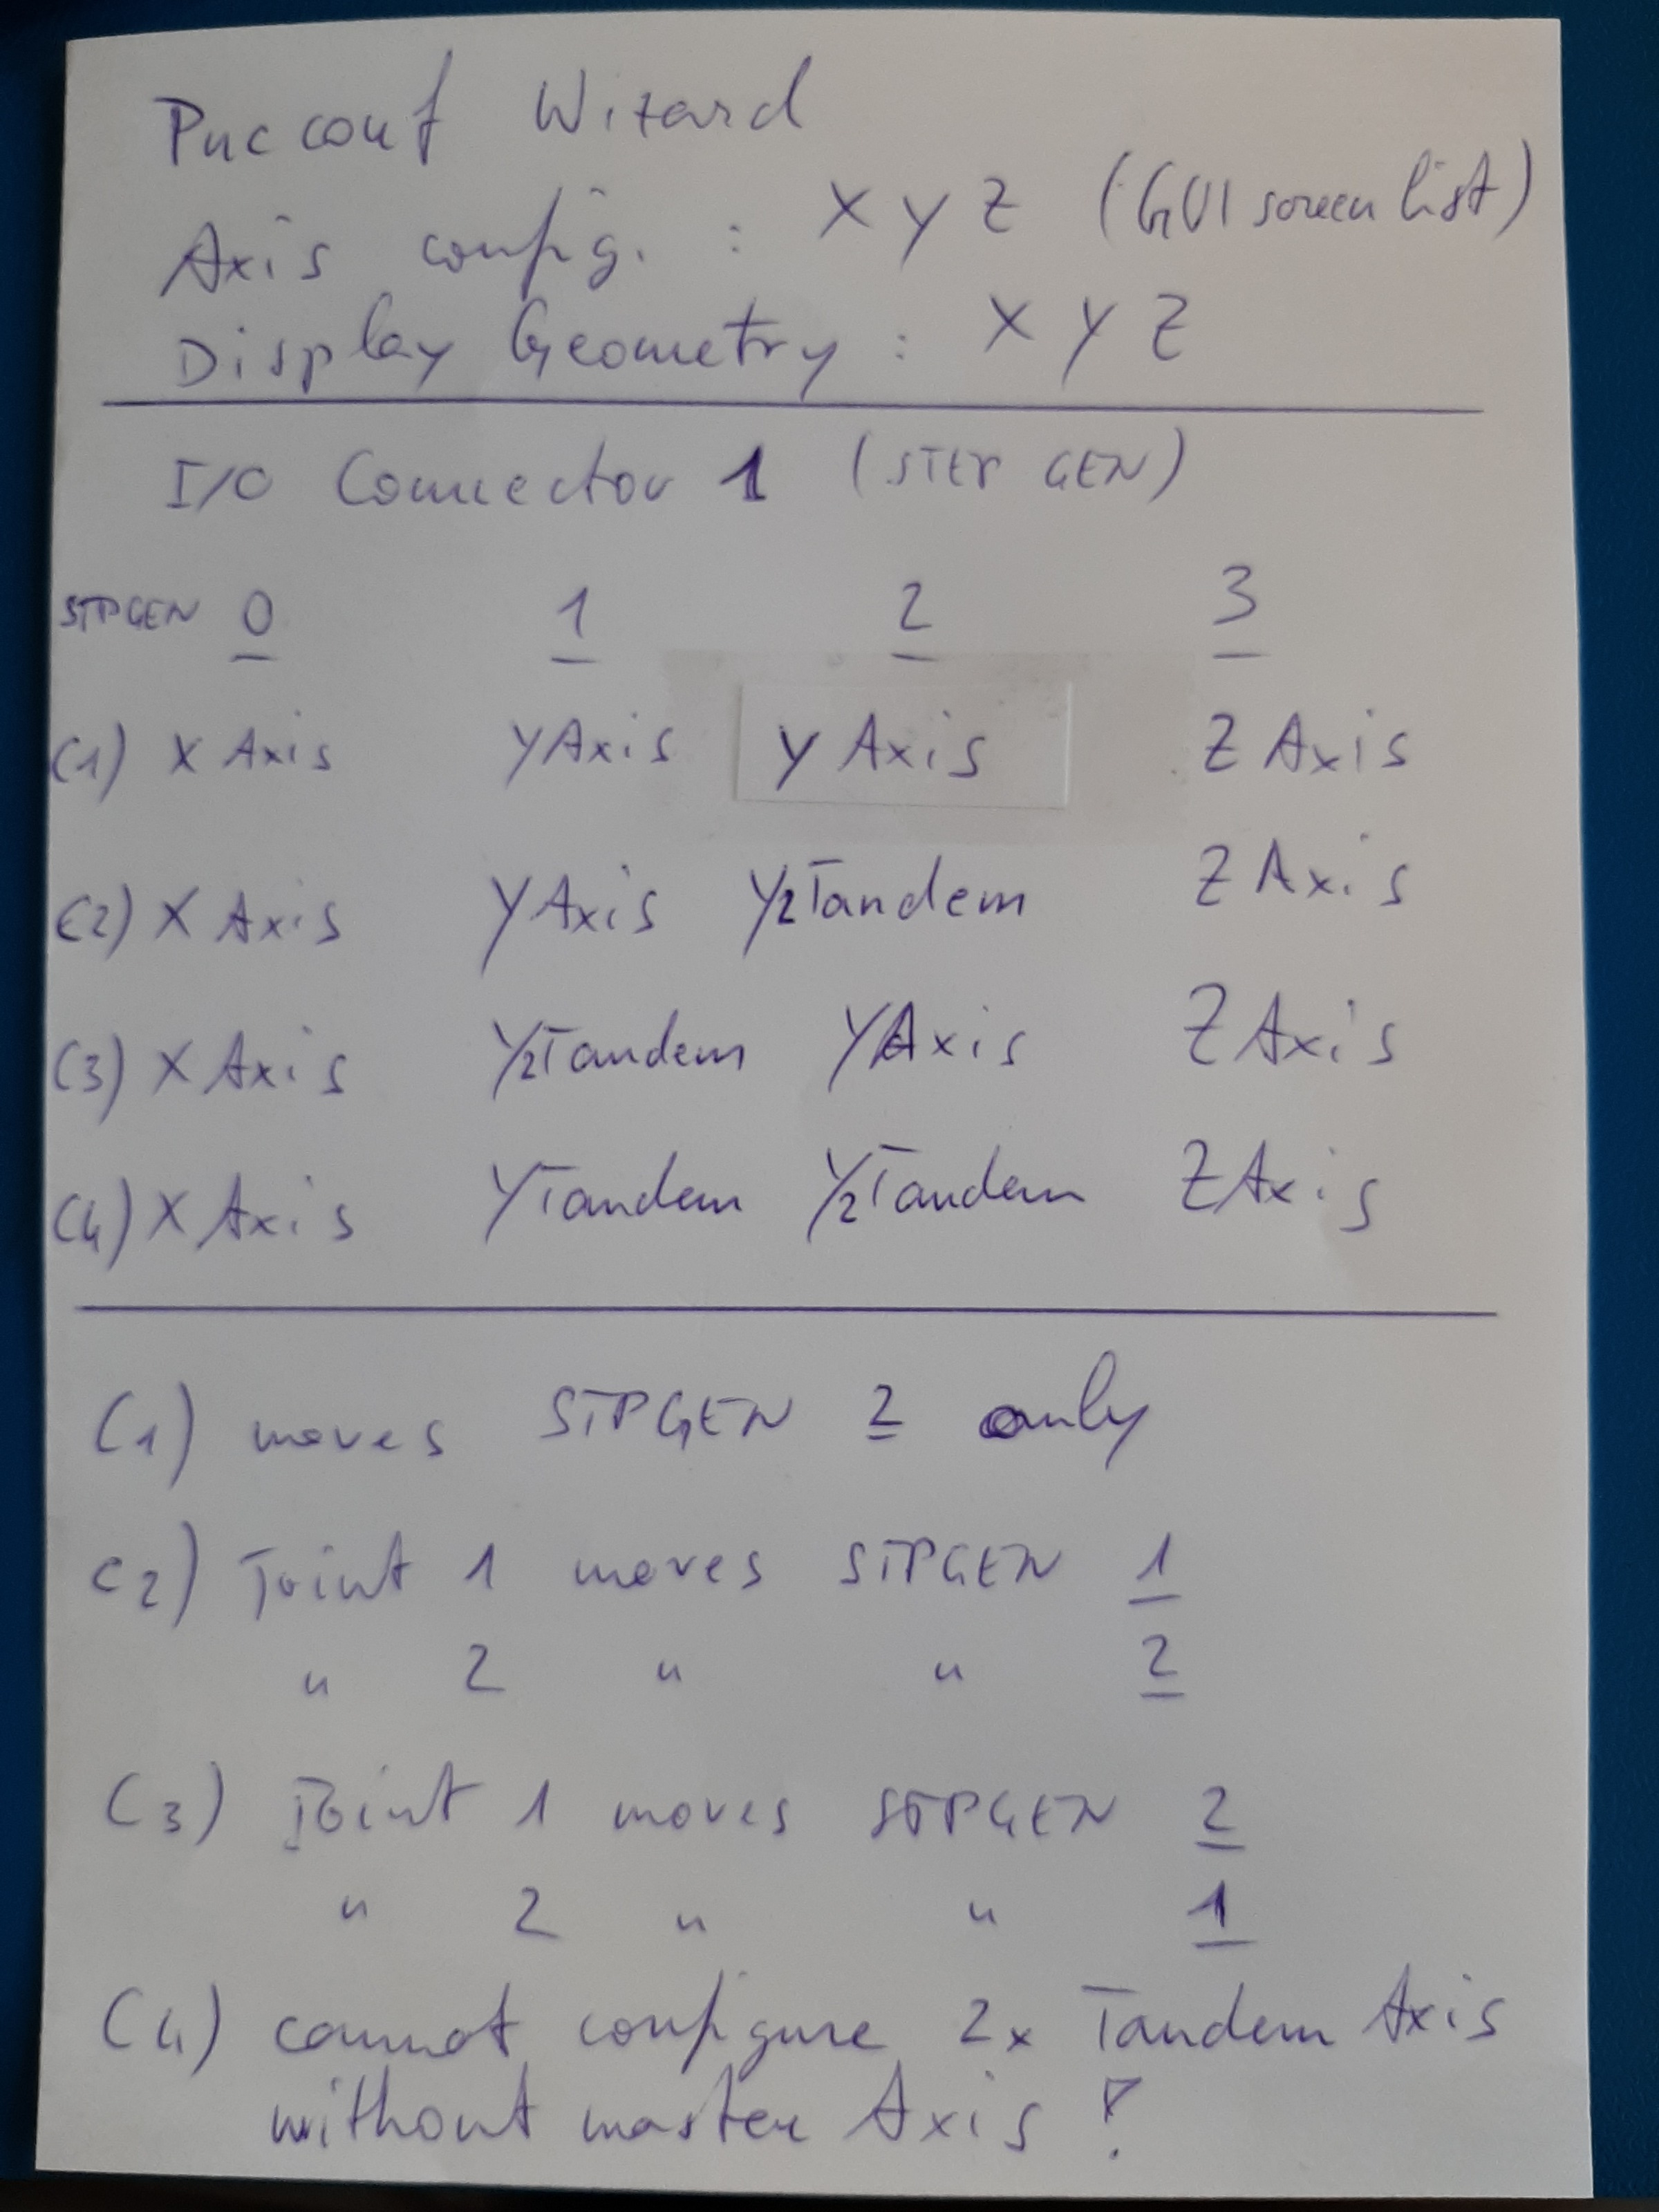 Pnc conf Wizard
Axis config. : X Y Z (GUI screen list)
Display Geometry : X Y Z
I/O Connector 1 (STEP GEN)
STPGEN 0 1 2 3
(1) X Axis Y Axis Y Axis Z Axis
(2) X Axis Y Axis Y2Tandem Z Axis
(3) X Axis Y2Tandem Y Axis Z Axis
(4) X Axis YTandem Y2Tandem Z Axis
(1) moves STPGEN 2 only
(2) Joint 1 moves STPGEN 1
" 2 " " 2
(3) Joint 1 moves STPGEN 2
" 2 " " 1
(4) cannot configure 2x Tandem Axis
without master Axis !